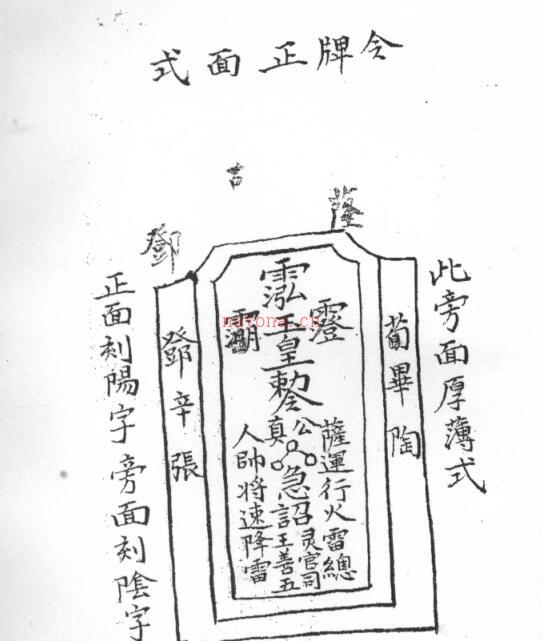 令牌正面式
鄧
此旁面厚薄式
苟畢陶
霐
玉皇勅令
薩運行火雷總
公
灵官司
急詔王善五
真
人帥將速降雷
鄧辛張
正面刻陽字旁面刻陰字
nayona.cn